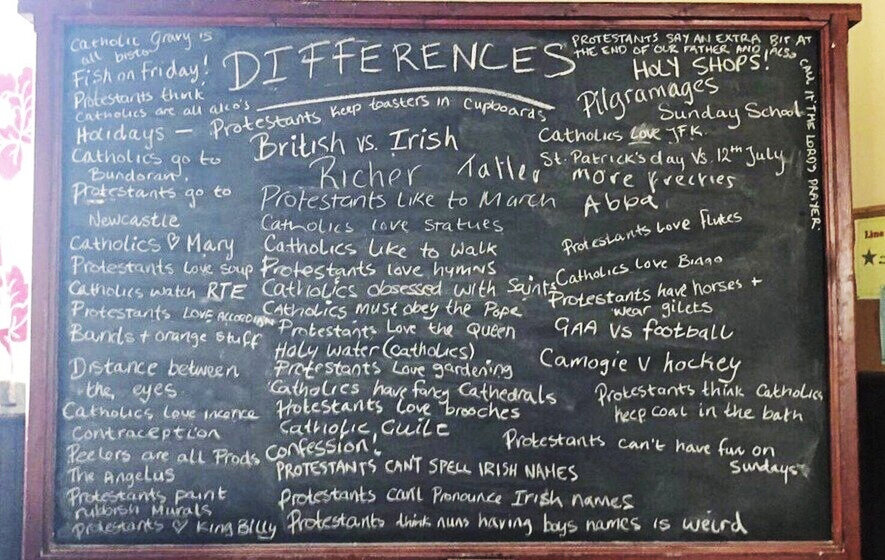 DIFFERENCES
Catholic Gravy is
all bisto
Fish on Friday!
Protestants think
Catholics are all alco's
Holidays — Protestants keep toasters in Cupboards
Catholics go to
Bundoran.
Protestants go to
Newcastle
Catholics ♡ Mary
Protestants love soup
Catholics watch RTE
Protestants LOVE ACCORDIAN
Bands + orange stuff
Distance between
the eyes
Catholics love incence
Contraception
Peelers are all Prods
The Angelus
Protestants paint
rubbish Murals
Protestants ♡ King Billy
British vs. Irish
Richer Taller
Protestants like to March
Catholics love statues
Catholics like to walk
Protestants love hymns
Catholics obsessed with Saints
Catholics must obey the Pope
Protestants Love the Queen
Holy water (Catholics)
Protestants Love gardening
Catholics have fancy Cathedrals
Protestants love brooches
Catholic Guilt
Confession!
PROTESTANTS CANT SPELL IRISH NAMES
Protestants can't Pronounce Irish names
Protestants think nuns having boys names is weird
PROTESTANTS SAY AN EXTRA BIT AT
THE END OF OUR FATHER AND ALSO
CALL IT THE LORDS PRAYER
HOLY SHOPS!
Pilgramages
Sunday School
Catholics Love JFK
St. Patrick's day Vs. 12th July
More freckles
Abba
Protestants Love Flutes
Catholics Love Bingo
Protestants have horses +
wear gilets
GAA VS football
Camogie V hockey
Protestants think Catholics
keep coal in the bath
Protestants can't have fun on
Sundays
Line